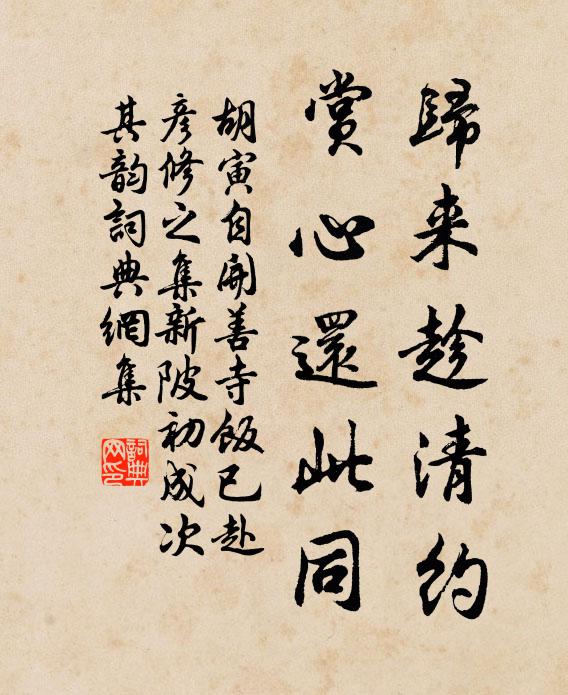 歸来趁清約
賞心還此同
胡寅自開善寺飯已赴
彦修之集新陂初成次
其韵詞典網集
詞典网印